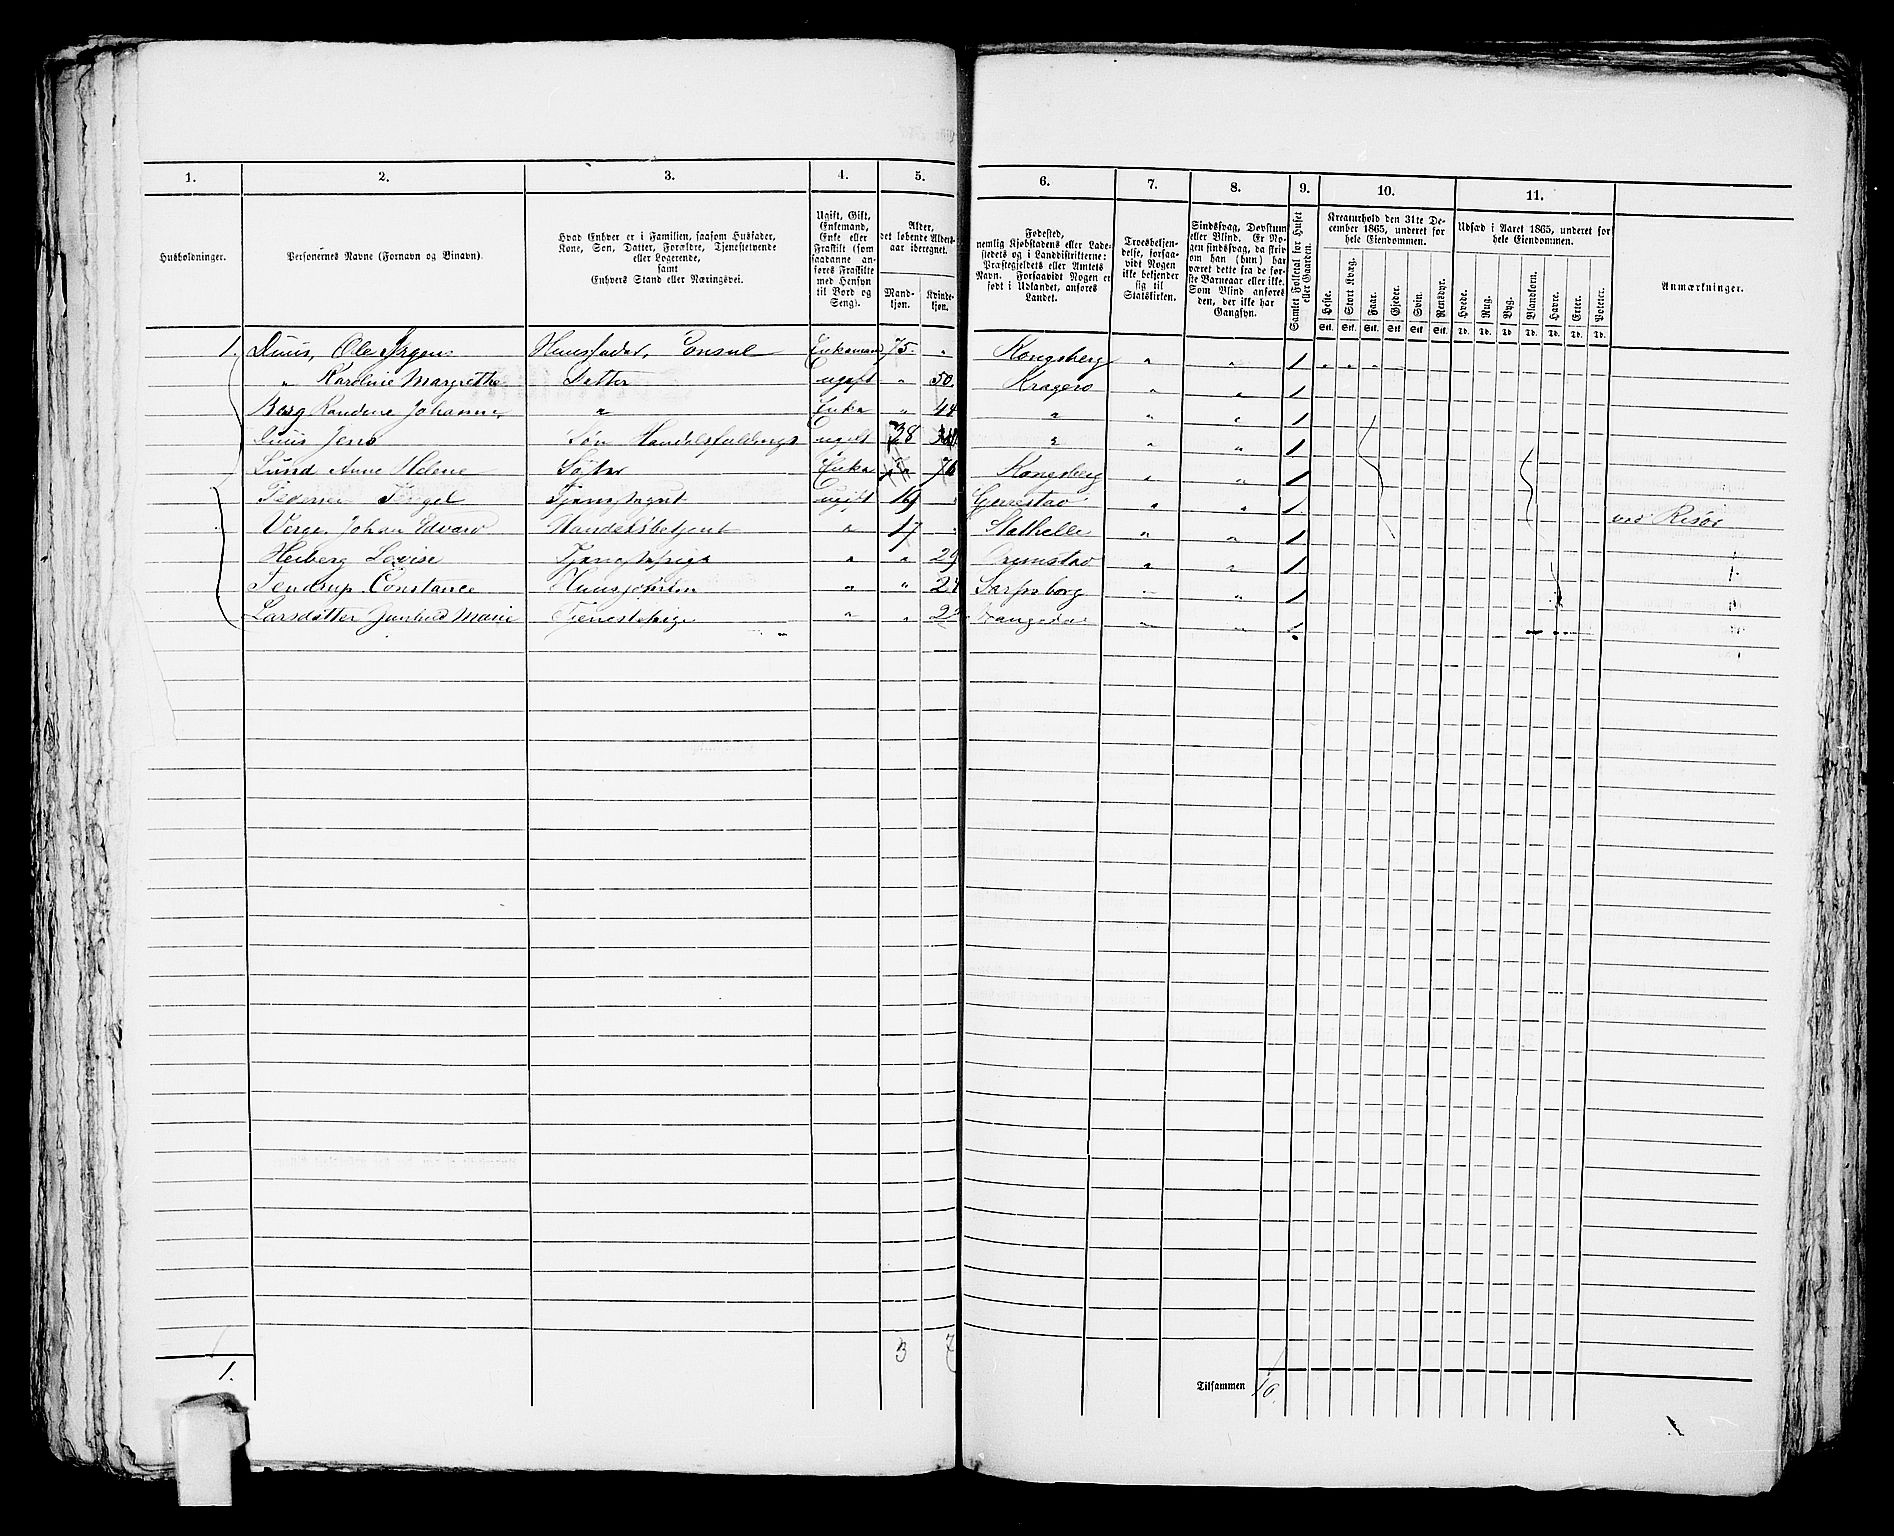 1. 2. 3. 4. 5. 6. 7. 8. 9. 10. 11.
Husholdninger.
Personernes Navne (Fornavn og Binavn).
Hvad Enhver er i Familien, saasom Husfader,
Kone, Søn, Datter, Forældre, Tjenestetyende
eller Logerende,
samt
Enhvers Stand eller Næringsvei.
Ugift, Gift,
Enkemand,
Enke eller
Fraskilt (som
saadanne an-
føres Fraskilte
med Hensyn
til Bord og
Seng).
Alder,
det løbende Alders-
aar iberegnet.
Mand-
kjøn.
Kvinde-
kjøn.
Fødested,
nemlig Kjøbstadens eller Lade-
stedets og i Landdistrikterne:
Præstegjeldets eller Amtets
Navn. Forsaavidt Nogen er
født i Udlandet, anføres
Landet.
Troesbekjen-
delse, forsaa-
vidt Nogen
ikke bekjender
sig til
Statskirken.
Sindssvag, Døvstum
eller Blind. Er No-
gen sindssvag, da skriv
om han (hun) har
været dette fra de før-
ste Barneaar eller ikke.
Som Blind anføres
den, der ikke har
Gangsyn.
Samlet Folketal for Huset
eller Gaarden.
Kreaturhold den 31te De-
cember 1865, underet for
hele Eiendommen.
Heste. Stort Kvæg. Faar. Gjeder. Svin. Rensdyr.
Stk. Stk. Stk. Stk. Stk. Stk.
Udsæd i Aaret 1865, underet for
hele Eiendommen.
Hvede. Rug. Byg. Blandkorn. Havre. Erter. Poteter.
Td. Td. Td. Td. Td. Td. Td.
Anmærkninger.
1. Duus, Ole Jørgen Huusfader, Consul Enkemand 75. " Kongsberg " " 1
" Karoline Margrethe Datter ugift " 50 Kragerø " " 1
Berg Randine Johanne " Enke " 44 " " " 1
Duus Jens Søn Handelsfuldmægt ugift 38 " " " 1
Lund Anne Helene Søster Enke " 76 Kongsberg " " 1
Pedersen Tjenestegut ugift 19 Gjerestad " " 1 ved Risør
Johan Edvard Handelsbetjent " 17 Stathelle " " 1
Heiberg Lovise Tjenestepige " " 29 Grimstad " " 1
Constance Huusjomfru " " 24 Sarpsborg " 1
Larsdatter Gunhild Marie Tjenestepige " " Drangedal " " 1
3 7
1.
Tilsammen 10